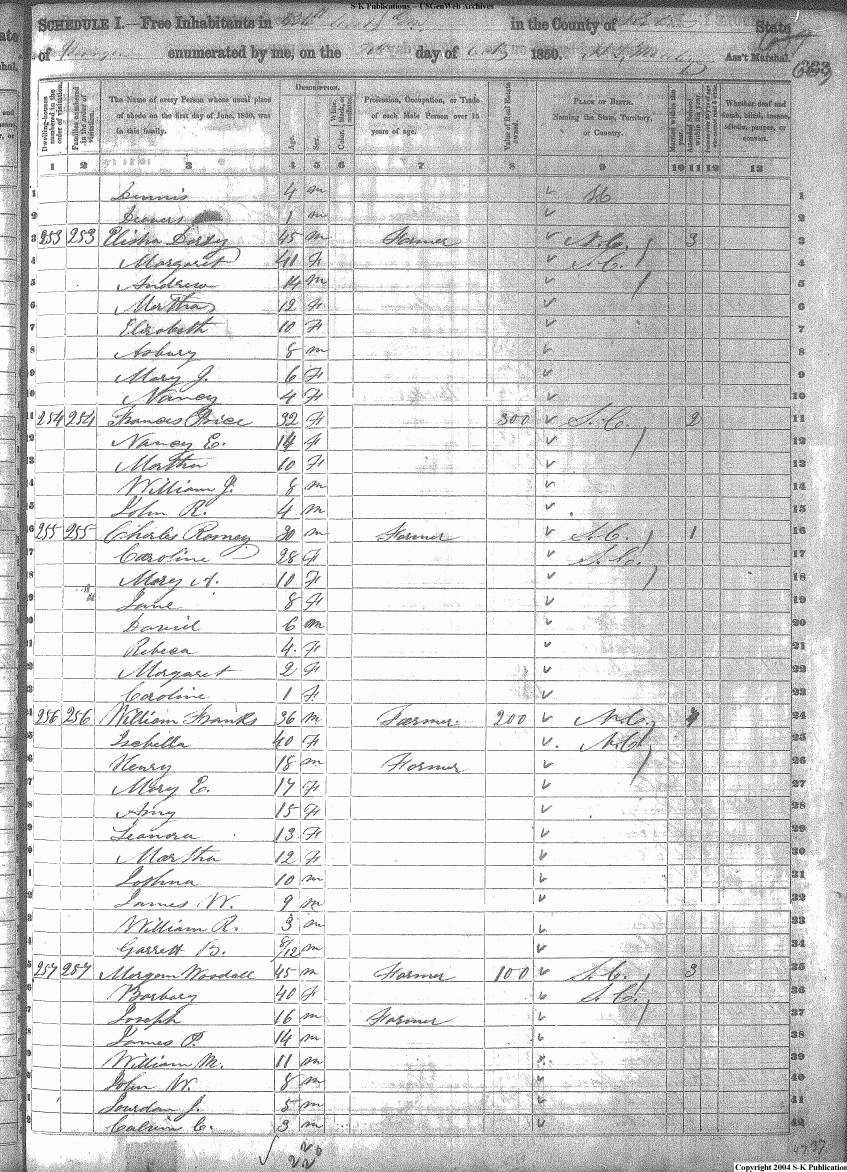 S-K Publications – USGenWeb Archives
SCHEDULE I.—Free Inhabitants in in the County of State
of enumerated by me, on the day of 1850. Ass't Marshal.
663
Dwelling-houses numbered in the order of visitation. Families numbered in the order of visitation. The Name of every Person whose usual place of abode on the first day of June, 1850, was in this family. DESCRIPTION. Age. Sex. Color, White, black, or mulatto. Profession, Occupation, or Trade of each Male Person over 15 years of age. Value of Real Estate owned. PLACE OF BIRTH. Naming the State, Territory, or Country. Married within the year. Attended School within the year. Whether deaf and dumb, blind, insane, idiotic, pauper, or convict.
1 2 3 4 5 6 7 8 9 10 11 12 13
1 Dennis 4 m 1
2 1 m 2
3 253 253 Elisha Dorsey 45 m Farmer N.C. 3 3
4 Margaret 41 F S.C. 4
5 Andrew 14 m 5
6 Martha 12 F 6
7 Elizabeth 10 F 7
8 Asbury 8 m 8
9 Mary J. 6 F 9
0 Nancy 4 F 10
1 254 254 Frances Price 32 F 300 S.C. 2 11
2 Nancy E. 14 F 12
3 Martha 10 F 13
4 William J. 8 m 14
5 John R. 4 m 15
6 255 255 Charles Romey 30 m Farmer S.C. 1 16
7 Caroline 28 F S.C. 17
8 Mary A. 10 F 18
9 Jane 8 F 19
0 David 6 m 20
1 Rebeca 4 F 21
2 Margaret 2 F 22
3 Caroline 1 F 23
4 256 256 William Franks 36 m Farmer 200 N.C. 24
5 Isebella 40 F N.C. 25
6 Henry 18 m Farmer 26
7 Mary E. 17 F 27
8 Amy 15 F 28
9 Leanora 13 F 29
0 Martha 12 F 30
1 Joshua 10 m 31
2 James W. 9 m 32
3 William R. 3 m 33
4 Garrett B. 8/12 m 34
5 257 257 Morgam Woodall 45 m Farmer 100 S.C. 3 35
6 Barbary 40 F S.C. 36
7 Joseph 16 m Farmer 37
8 James P. 14 m 38
9 William M. 11 m 39
0 John W. 8 m 40
1 Jourdan J. 5 m 41
2 Calvin C. 3 m 42
Copyright 2004 S-K Publication